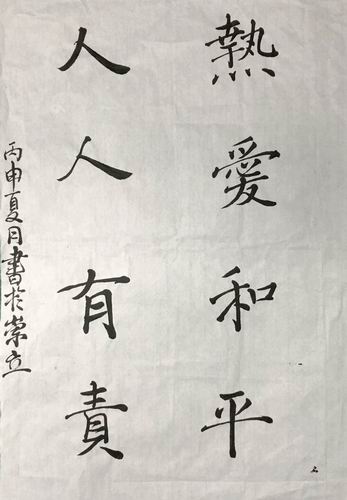 熱愛和平
人人有責
丙申夏月書於崇立